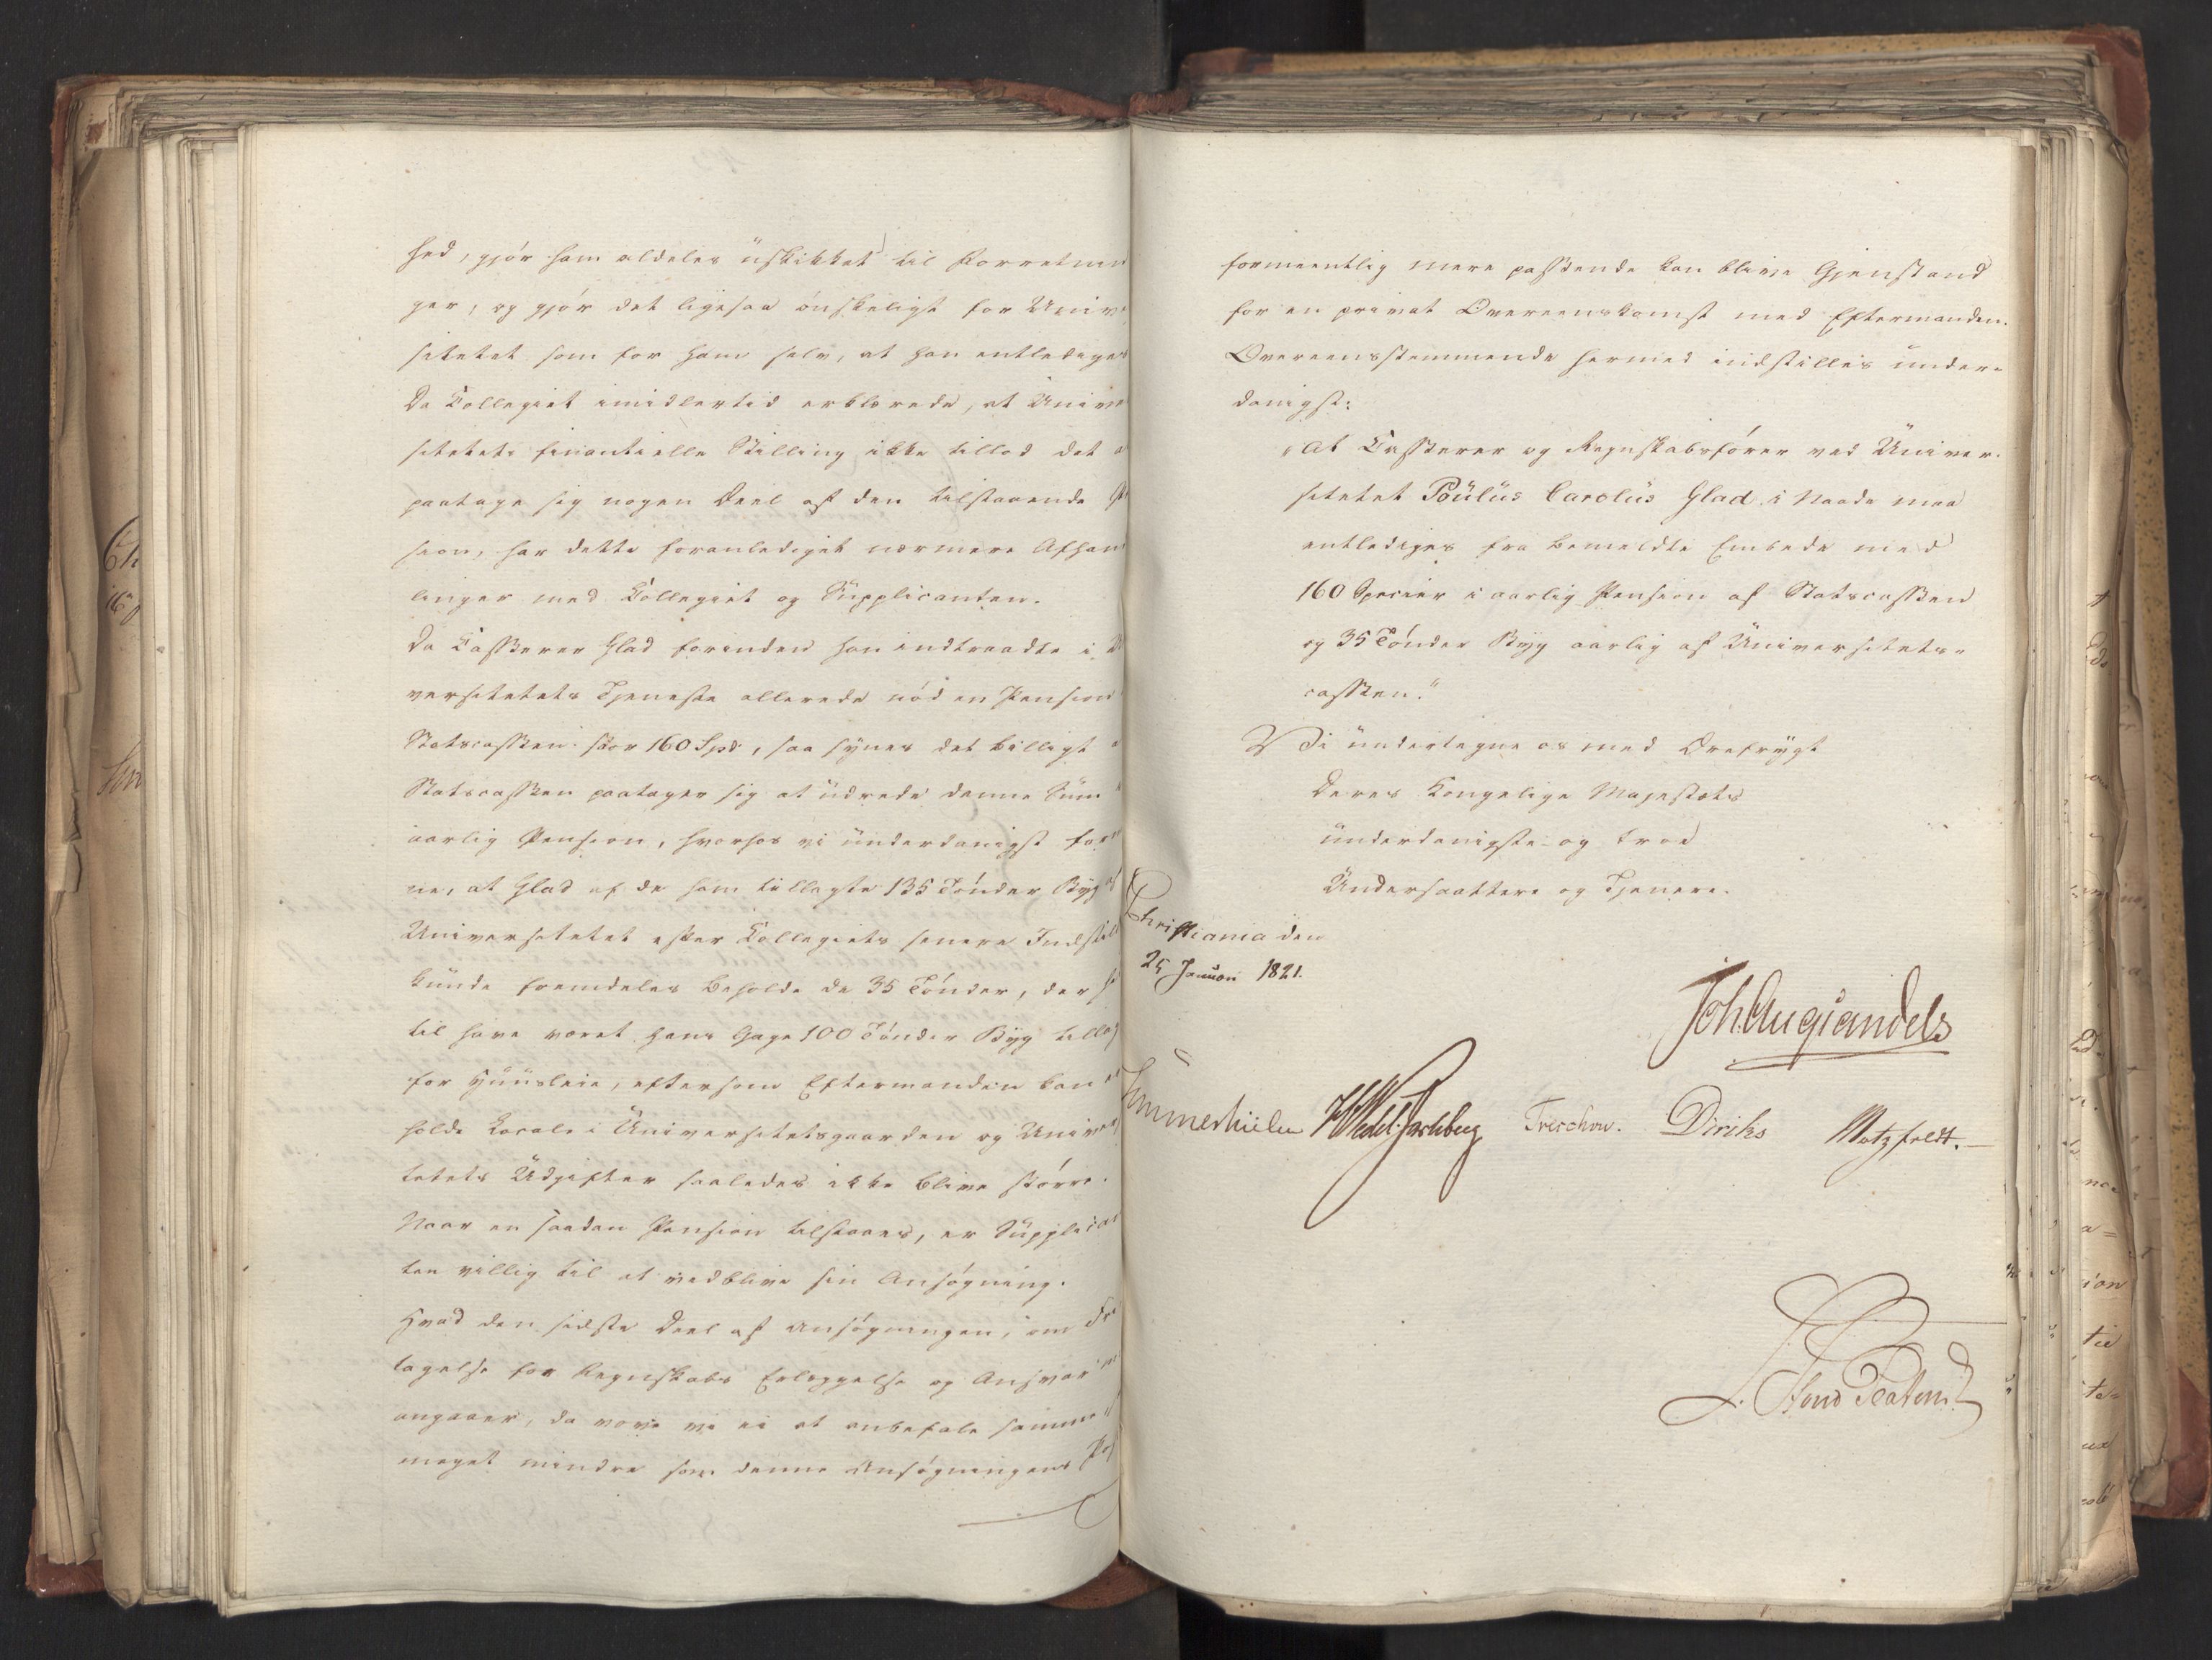 hed, gjør ham aldeles uskikket til Forretnin
ger, og gjør det ligesaa ønskeligt for Univ
sitetet som for ham selv, at han entlediges
Da Collegiet imidlertid erklærede, at Unive
sitetets finantielle Stilling ikke tillod det
paatage sig nogen Deel af den tilstaaende
sion, har dette foranlediget nærmere Afhan
linger med Collegiet og Supplicanten.
Da Casserer Glad forinden han indtraadte i
versitetets Tjeneste allerede nød en Pension
Statscassen stor 160 Spd, saa synes det billigt
Statscassen paatager sig at udrede denne Sum
aarlig Pension, hvorhos vi underdanigst for
ne, at Glad af de ham tillagte 135 Tønder Byg af
Universitetet efter Collegiets senere Indstill
kunde fremdeles beholde de 35 Tønder, der
til have været hans Gage 100 Tønder Byg tillag
for Huusleie, eftersom Eftermanden kan
holde Locale i Universitetsgaarden og Univer
tetets Udgifter saaledes ikke blive større.
Naar en saadan Pension tilstaaes, er Supplican
ten villig til at vedblive sin Ansøgning.
Hvad den sidste Deel af Ansøgningen, om Fri
tagelse for Regnskabs Erlæggelse og Ansvar
angaaer, da vove vi ei at anbefale samme
meget mindre som denne Ansøgningens
formeentlig mere passende kan blive Gjenstand
for en privat Overeenskomst med Eftermanden.
Overeensstemmende hermed indstilles under-
danigst:
"At Casserer og Regnskabsfører ved Univer-
sitetet Poulus Carolus Glad i Naade maa
entlediges fra bemeldte Embede med
160 Specier i aarlig Pension af Statscassen
og 35 Tønder Byg aarlig af Universitets-
cassen."
Vi undertegne os med Ærefrygt
Deres Kongelige Majestæts
underdanigste og troe
Undersaattere og Tjenere.
Christiania den
25 Januari 1821.
Joh. Aug. Sandels
Sommerhielm H Wedel Jarlsberg Treschow. Diriks Motzfeldt.